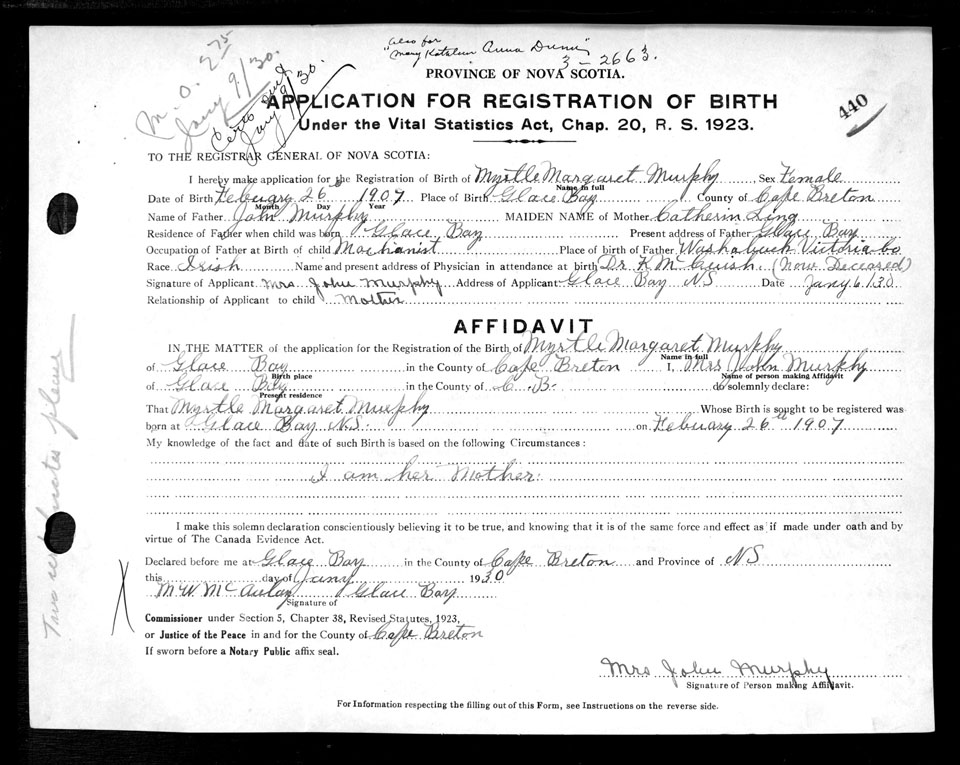 "also for
Mary Katelun Anna Dunn"
3 – 2663.
M. O. 75
Jany 9/30.
Certs sent
Jany 9/30.
440
PROVINCE OF NOVA SCOTIA.
APPLICATION FOR REGISTRATION OF BIRTH
Under the Vital Statistics Act, Chap. 20, R. S. 1923.
TO THE REGISTRAR GENERAL OF NOVA SCOTIA:
I hereby make application for the Registration of Birth of Myrtle Margaret Murphy Sex Female
Name in full
Date of Birth Febuary 26th 1907 Place of Birth Glace Bay County of Cape Breton
Month Day Year
Name of Father John Murphy MAIDEN NAME of Mother Catherin Ling
Residence of Father when child was born Glace Bay Present address of Father Glace Bay
Occupation of Father at Birth of child Machanist Place of birth of Father Washabuck Victoria Co
Race Irish Name and present address of Physician in attendance at birth Dr K McCuish (Now Deceared)
Signature of Applicant Mrs John Murphy Address of Applicant Glace Bay NS Date Jany 6/30
Relationship of Applicant to child Mother
AFFIDAVIT
IN THE MATTER of the application for the Registration of the Birth of Myrtle Margaret Murphy
Name in full
of Glace Bay in the County of Cape Breton I, Mrs John Murphy
Birth place Name of person making Affidavit
of Glace Bay in the County of C. B. do solemnly declare:
Present residence
That Myrtle Margaret Murphy Whose Birth is sought to be registered was
born at Glace Bay NS. on Febuary 26th 1907
My knowledge of the fact and date of such Birth is based on the following Circumstances:
I am her Mother.
I make this solemn declaration conscientiously believing it to be true, and knowing that it is of the same force and effect as if made under oath and by
virtue of The Canada Evidence Act.
Declared before me at Glace Bay in the County of Cape Breton and Province of NS
this day of Jany 1930
M W McAulay Glace Bay
Signature of
Commissioner under Section 5, Chapter 38, Revised Statutes, 1923,
or Justice of the Peace in and for the County of Cape Breton
If sworn before a Notary Public affix seal.
Mrs John Murphy
Signature of Person making Affidavit.
For Information respecting the filling out of this Form, see Instructions on the reverse side.
Two please